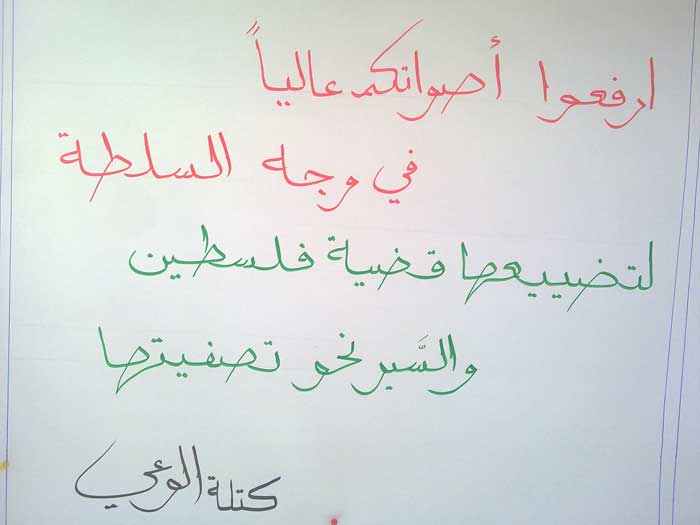 ارفعوا أصواتكم عالياً
في وجه السلطة
لتضييعها قضية فلسطين
والسَّير نحو تصفيتها
كتلة الوعي